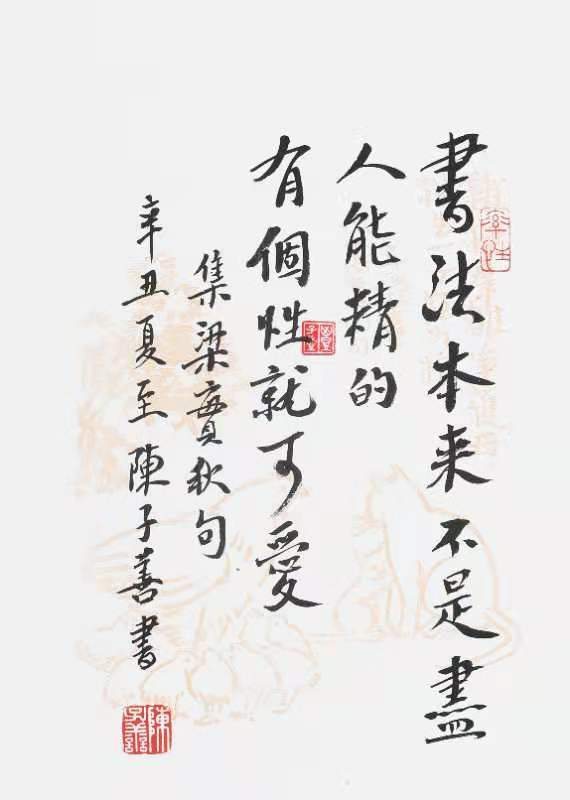 書法本来不是盡
人能精的
有個性就可愛
集梁實秋句
辛丑夏至陳子善書
率性
陳子善